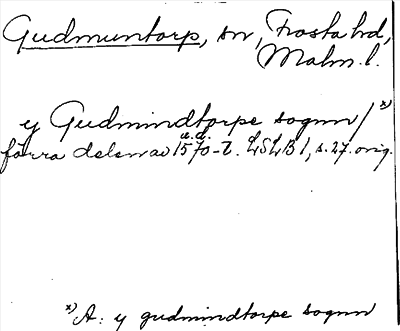 Gudmuntorp, sn, Frosta hd,
Malm. l.
y Gudmindtorpe sognn/ x)
u.d.
förra delen av 1570-t. LSLB 1, s. 27. orig.
x) A: y gudmindtorpe sognn